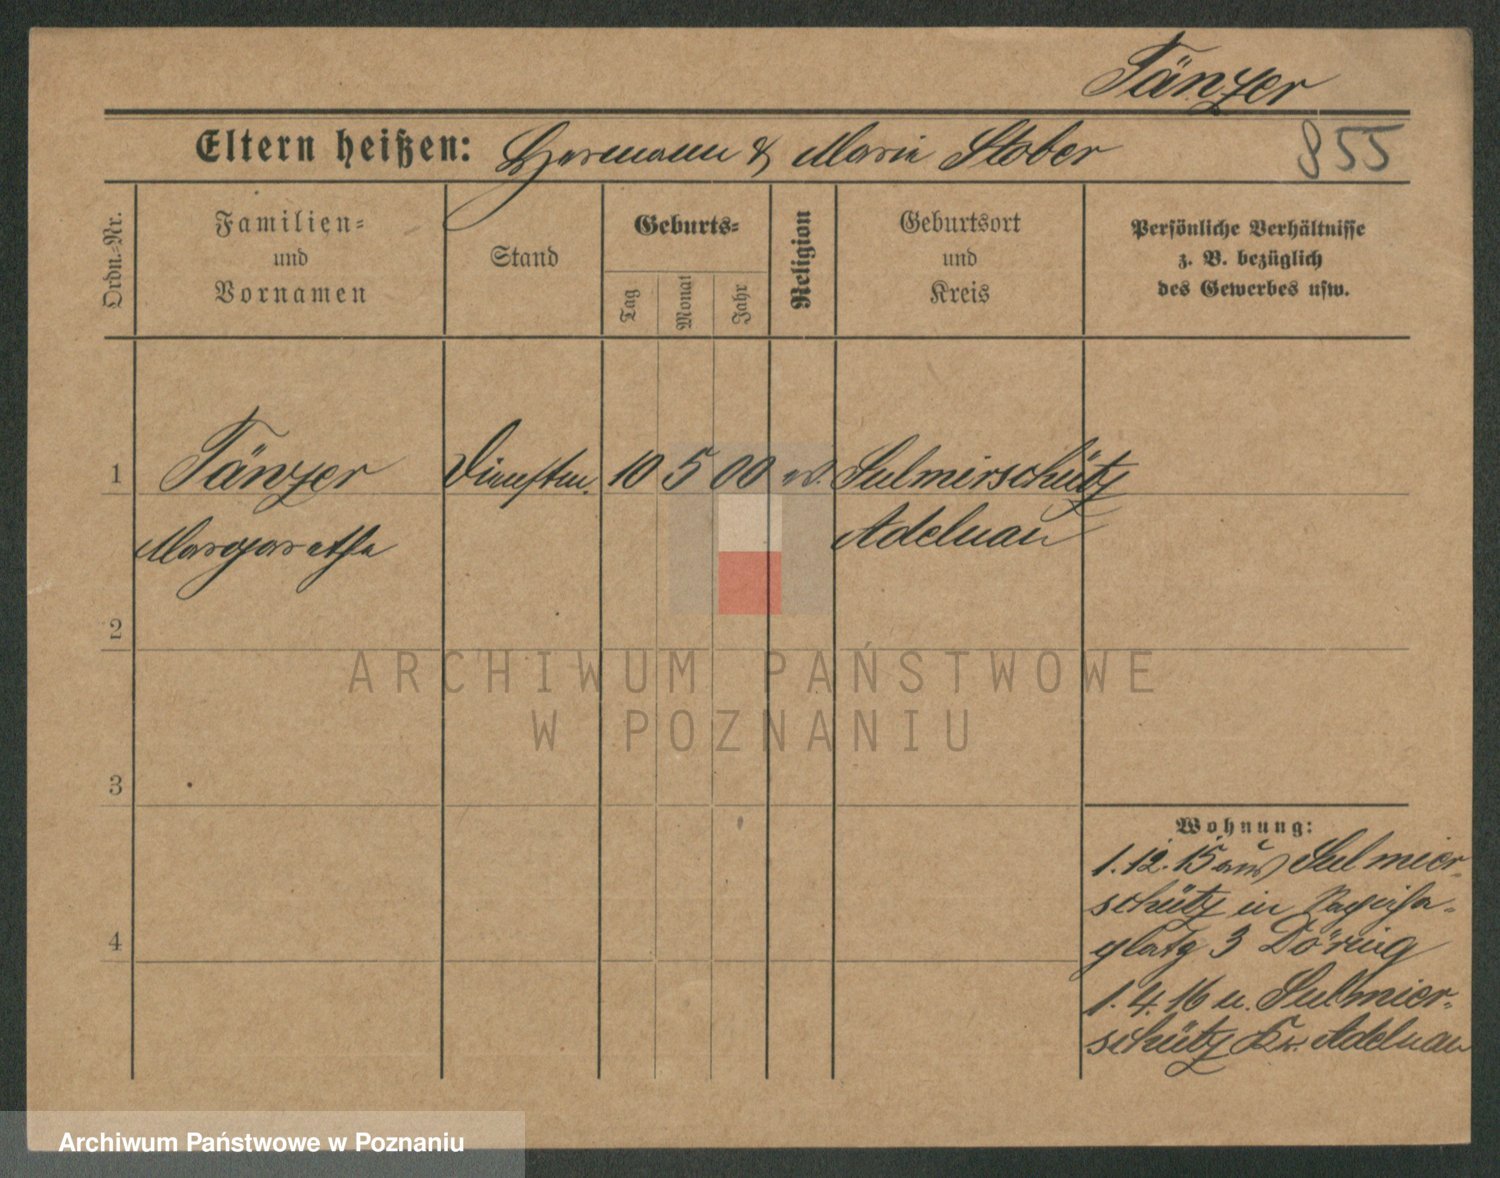 Tänzer
Eltern heißen: Hermann & Marie Stober 855
Ordn.-Nr.
Familien-
und
Vornamen
Stand
Geburts-
Tag
Monat
Jahr
Religion
Geburtsort
und
Kreis
Persönliche Verhältnisse
z. B. bezüglich
des Gewerbes usw.
1 Tänzer Dienstm. 10 5 00 ev. Sulmirschütz
Margarethe Adelnau
2
3
4
Wohnung:
1.12.15 aus Sulmier-
schütz in
platz 3 Döring
1.4.16 n. Sulmier-
schütz Kr. Adelnau
ARCHIWUM PAŃSTWOWE
W POZNANIU
Archiwum Państwowe w Poznaniu